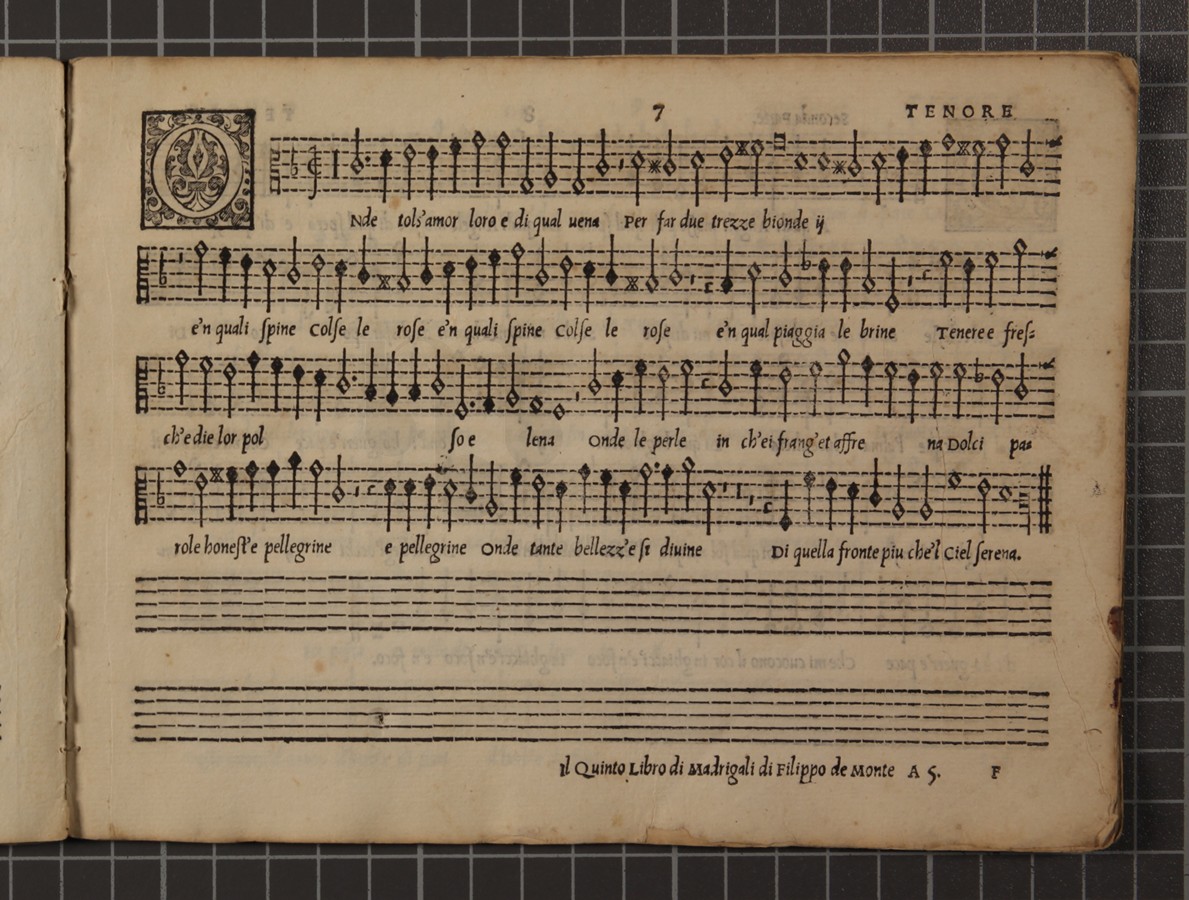 7 TENORE
ONde tols'amor loro e di qual uena Per far due trezze bionde ij
e'n quali spine Colse le rose e'n quali spine Colse le rose e'n qual piaggia le brine Tenere e fres-
ch'e die lor pol so e lena Onde le perle in ch'ei frang'et affre na Dolci pa-
role honest'e pellegrine e pellegrine Onde tante bellezz'e si diuine Di quella fronte piu che'l Ciel serena.
Il Quinto Libro di Madrigali di Filippo de Monte A 5. F